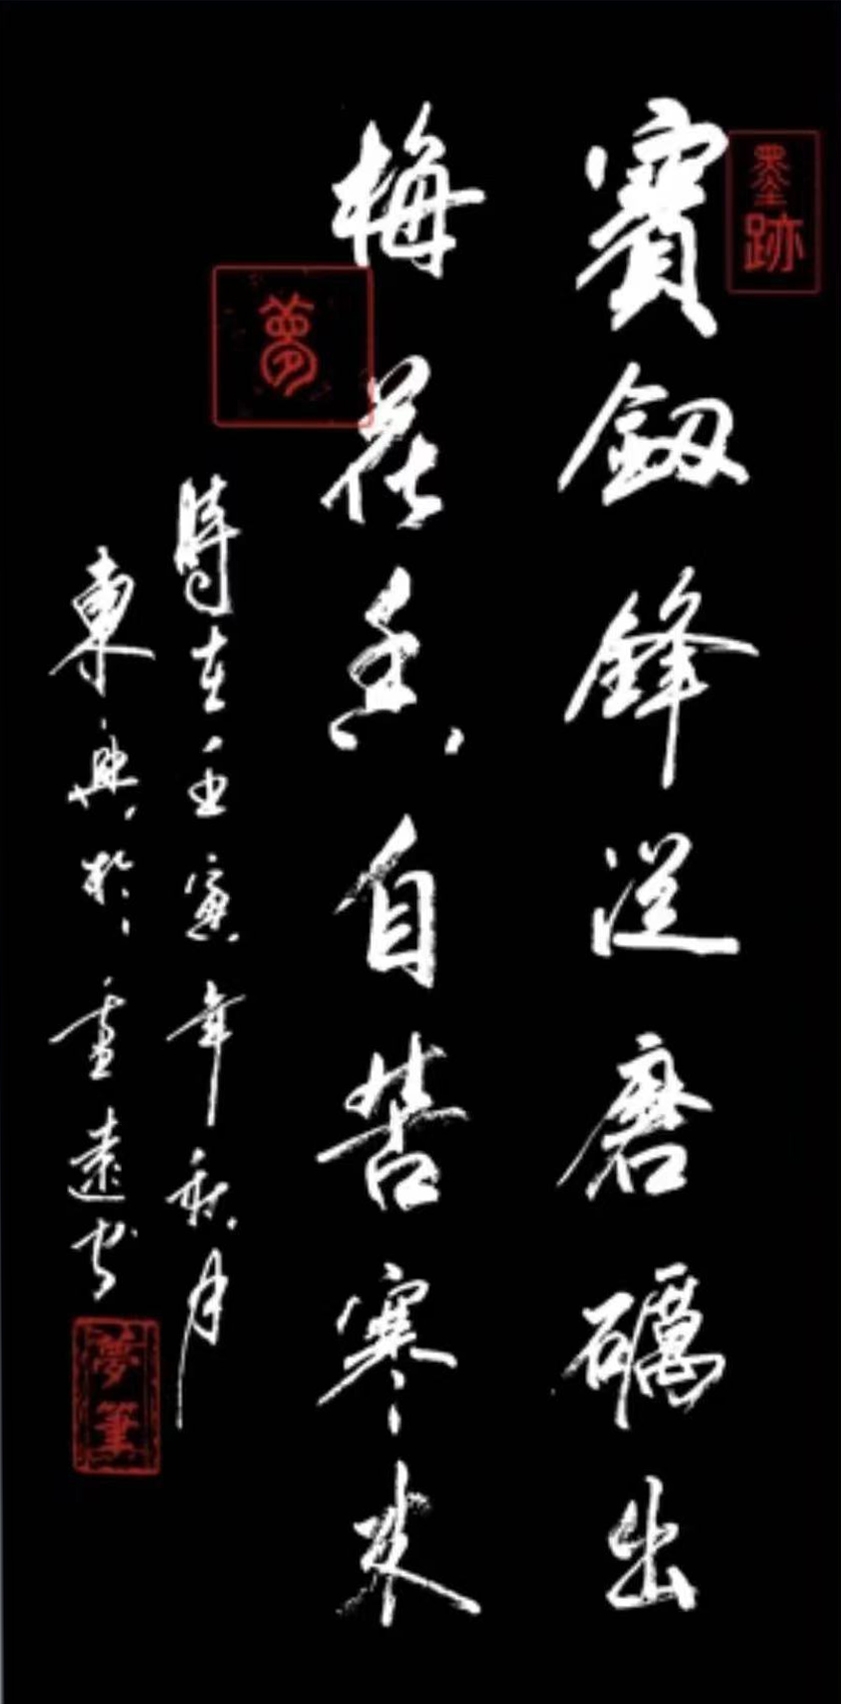 墨跡
寶劔鋒從磨礪出
梅花香自苦寒來
夢
時在壬寅年秋月
東興於畫遠書
夢筆